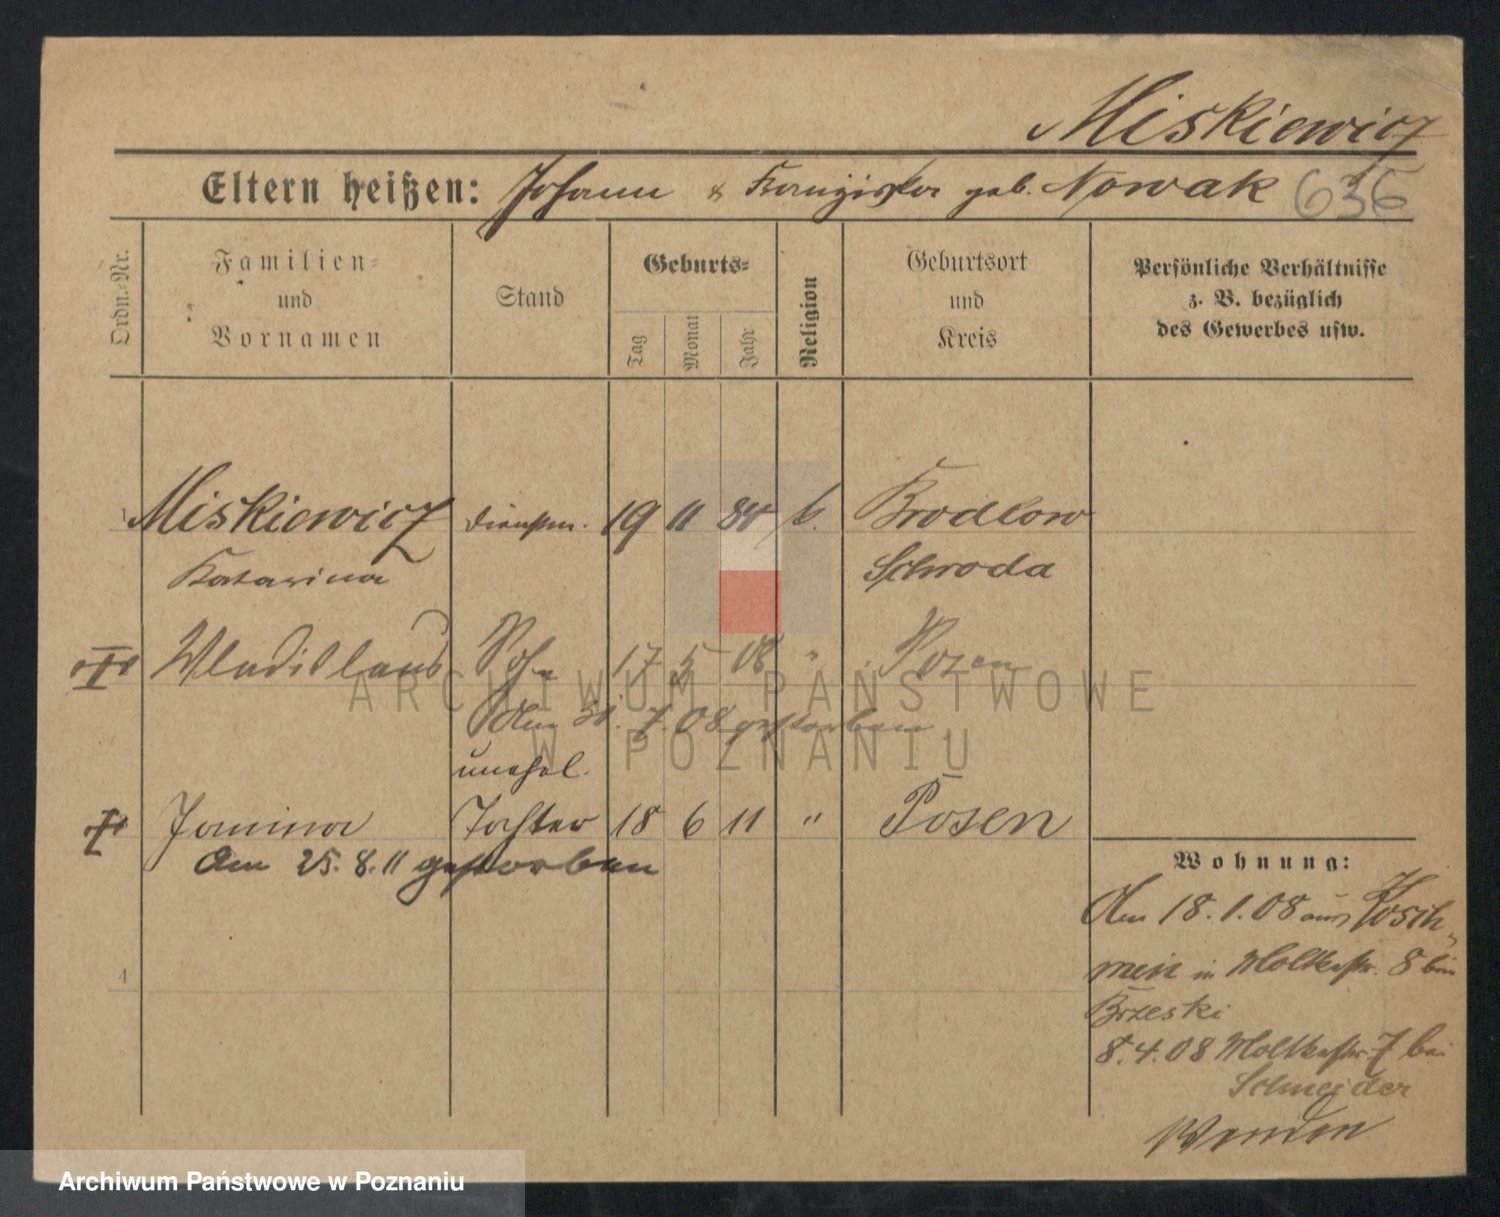 Miskiewicz
Eltern heißen: Johann & Franziska geb. Nowak 636
Ordn.-Nr.
Familien- und Vornamen
Stand
Geburts-
Tag
Monat
Jahr
Religion
Geburtsort und Kreis
Persönliche Verhältnisse
z. B. bezüglich
des Gewerbes usw.
Miskiewicz Dienstm. 19 11 84 k. Brodlow
Katarina Schroda
Wladislaus Sohn 17 5 08 " Posen
Den 31. 7. 08 gestorben
unehel.
Janina Tochter 18 6 11 " Posen
Am 25. 8. 11 gestorben
Wohnung:
Den 18. 1. 08 aus Kosch-
min in Moltkestr. 8 bei
Brzeski
8. 4. 08 Moltkestr. 7 bei
Schneider
Wenden
4
ARCHIWUM PAŃSTWOWE
W POZNANIU
Archiwum Państwowe w Poznaniu